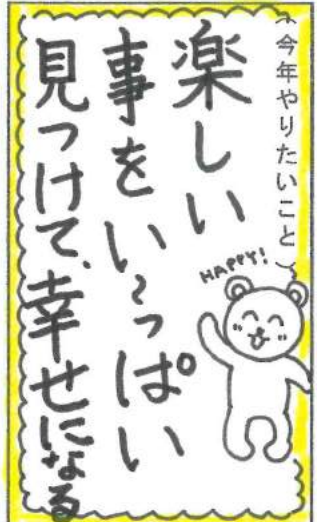 (今年やりたいこと)
楽しい
事をい〜っぱい
見つけて、幸せになる
HAPPY!